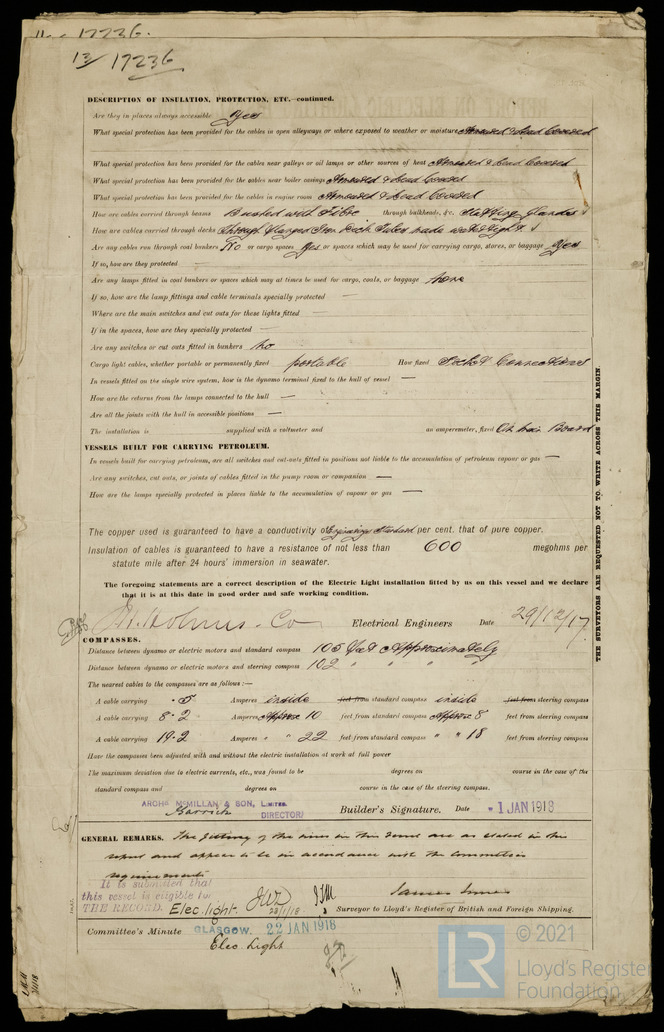 17236.
13/17236
DESCRIPTION OF INSULATION, PROTECTION, ETC.—continued.
Are they in places always accessible Yes
What special protection has been provided for the cables in open alleyways or where exposed to weather or moisture Armoured & Lead Covered
What special protection has been provided for the cables near galleys or oil lamps or other sources of heat Armoured & Lead Covered
What special protection has been provided for the cables near boiler casings Armoured & Lead Covered
What special protection has been provided for the cables in engine room Armoured & Lead Covered
How are cables carried through beams Bushed with Fibre through bulkheads, &c. Stuffing Glands
How are cables carried through decks Through Flanged Iron Tubes made watertight
Are any cables run through coal bunkers No or cargo spaces Yes or spaces which may be used for carrying cargo, stores, or baggage Yes
If so, how are they protected —
Are any lamps fitted in coal bunkers or spaces which may at times be used for cargo, coals, or baggage None
If so, how are the lamp fittings and cable terminals specially protected —
Where are the main switches and cut outs for these lights fitted —
If in the spaces, how are they specially protected —
Are any switches or cut outs fitted in bunkers No
Cargo light cables, whether portable or permanently fixed portable How fixed Socket Connections
In vessels fitted on the single wire system, how is the dynamo terminal fixed to the hull of vessel —
How are the returns from the lamps connected to the hull —
Are all the joints with the hull in accessible positions —
The installation is supplied with a voltmeter and an amperemeter, fixed On Main Board
VESSELS BUILT FOR CARRYING PETROLEUM.
In vessels built for carrying petroleum, are all switches and cut-outs fitted in positions not liable to the accumulation of petroleum vapour or gas —
Are any switches, cut outs, or joints of cables fitted in the pump room or companion —
How are the lamps specially protected in places liable to the accumulation of vapour or gas —
The copper used is guaranteed to have a conductivity of Engineering Standard per cent. that of pure copper.
Insulation of cables is guaranteed to have a resistance of not less than 600 megohms per
statute mile after 24 hours' immersion in seawater.
The foregoing statements are a correct description of the Electric Light installation fitted by us on this vessel and we declare
that it is at this date in good order and safe working condition.
Holmes & Co Electrical Engineers Date 29/12/17
COMPASSES.
Distance between dynamo or electric motors and standard compass 105 feet Approximately
Distance between dynamo or electric motors and steering compass 102 " " "
The nearest cables to the compasses are as follows:—
A cable carrying .5 Amperes inside feet from standard compass inside feet from steering compass
A cable carrying 8.2 Amperes Approx 10 feet from standard compass Approx 8 feet from steering compass
A cable carrying 14.2 Amperes " " 22 feet from standard compass " " 18 feet from steering compass
Have the compasses been adjusted with and without the electric installation at work at full power
The maximum deviation due to electric currents, etc., was found to be degrees on course in the case of the
standard compass and degrees on course in the case of the steering compass.
ARCHD McMILLAN & SON, LIMITED.
DIRECTOR Builder's Signature. Date 1 JAN 1918
GENERAL REMARKS. The fitting of the wires in this vessel are as stated in this
report and appear to be in accordance with the Committee's
requirements
It is submitted that
this vessel is eligible for
THE RECORD. Elec. light. 23/1/18
James Innes
Surveyor to Lloyd's Register of British and Foreign Shipping.
Committee's Minute GLASGOW. 22 JAN 1918
Elec Light
THE SURVEYORS ARE REQUESTED NOT TO WRITE ACROSS THIS MARGIN.
LR
© 2021
Lloyd's Register
Foundation